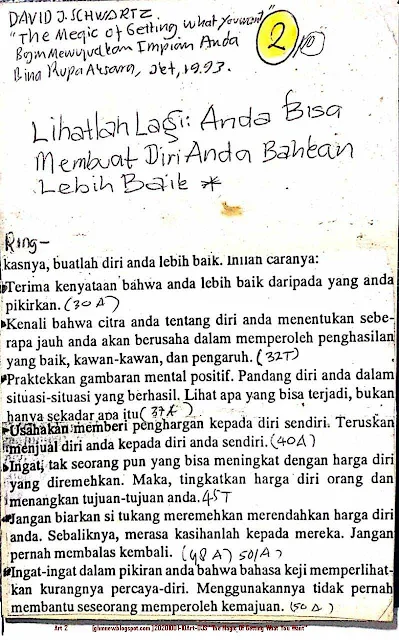 DAVID J. SCHWARTZ.
"The Megic of Getting what You want"
Bgmn Mewujudkan Impian Anda
Bina Rupa Aksara, Jkt, 1993.
2
Lihatlah Lagi: Anda Bisa
Membuat Diri Anda Bahkan
Lebih Baik *
Ring-
kasnya, buatlah diri anda lebih baik. Inilah caranya:
Terima kenyataan bahwa anda lebih baik daripada yang anda
pikirkan. (30A)
Kenali bahwa citra anda tentang diri anda menentukan sebe-
rapa jauh anda akan berusaha dalam memperoleh penghasilan
yang baik, kawan-kawan, dan pengaruh. (32T)
Praktekkan gambaran mental positif. Pandang diri anda dalam
situasi-situasi yang berhasil. Lihat apa yang bisa terjadi, bukan
hanya sekadar apa itu (37A)
Usahakan memberi penghargaan kepada diri sendiri. Teruskan
menjual diri anda kepada diri anda sendiri. (40A)
Ingat, tak seorang pun yang bisa meningkat dengan harga diri
yang diremehkan. Maka, tingkatkan harga diri orang dan
menangkan tujuan-tujuan anda. 45T
Jangan biarkan si tukang meremehkan merendahkan harga diri
anda. Sebaliknya, merasa kasihanlah kepada mereka. Jangan
pernah membalas kembali. (48A) 50/A)
Ingat-ingat dalam pikiran anda bahwa bahasa keji memperlihat-
kan kurangnya percaya-diri. Menggunakannya tidak pernah
membantu seseorang memperoleh kemajuan. (50A)
Art 2
"The Magic Of Getting What You Want"